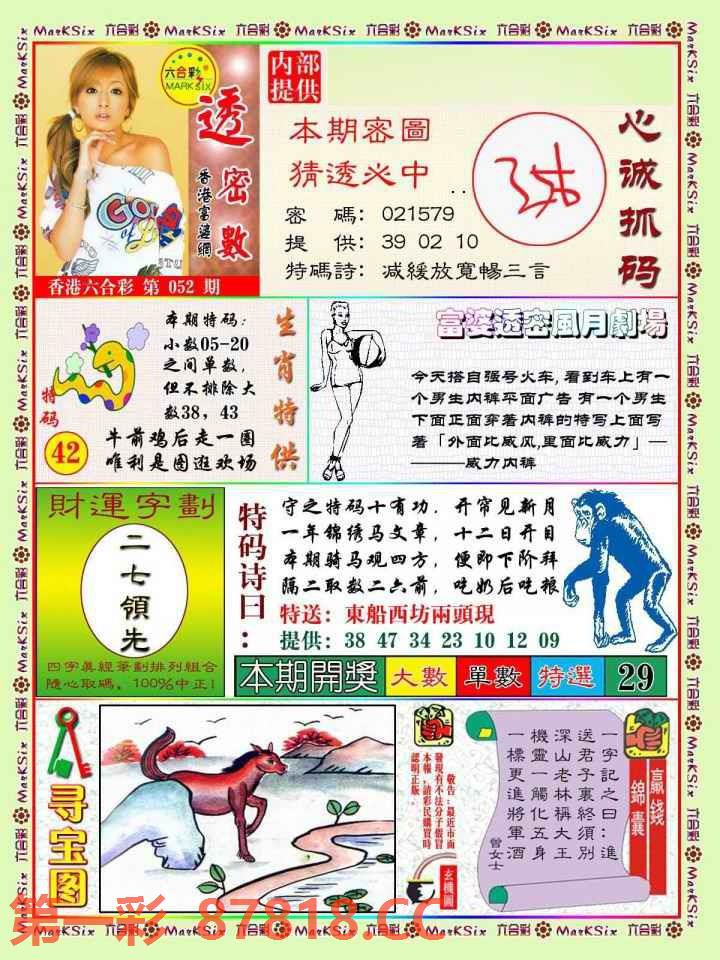 MarKSix 六合彩 MarKSix 六合彩 MarKSix 六合彩 MarKSix 六合彩 MarKSix
六合彩
MARK SIX
透密數
香港富婆網
香港六合彩 第 052 期
内部
提供
本期密圖
猜透必中
密 碼: 021579
提 供: 39 02 10
特碼詩: 减緩放寬暢三言
心诚抓码
本期特码:
小数05-20
之间单数,
但不排除大
数38, 43
特码
42
牛前鸡后走一圈
唯利是图逛欢场
生肖特供
富婆透密風月劇場
今天搭自强号火车, 看到车上有一
个男生内裤平面广告 有一个男生
下面正面穿着内裤的特写上面写
着「外面比威风,里面比威力」—
———威力内裤
財運字劃
二七領先
四字真經筆劃排列組合
隨心取碼, 100%中正!
特码诗曰:
守之特码十有功, 开帘见新月
一年锦绣马文章, 十二日开目
本期骑马观四方, 便即下阶拜
隔二取数二六前, 吃奶后吃粮
特送: 東船西坊兩頭現
提供: 38 47 34 23 10 12 09
本期開獎 大數 單數 特選 29
寻宝图
敬告:最近市面
發現有不法分子假冒
本報,請彩民購買時
認明正版.
玄機圖
一字記之曰:進
送君子裏終須別
深山老林稱大王
機靈一觸化五身
一標更進將軍酒
曾女士
贏錢
錦囊
第一彩 87818.CC
MarKSix 六合彩 MarKSix 六合彩 MarKSix 六合彩 MarKSix